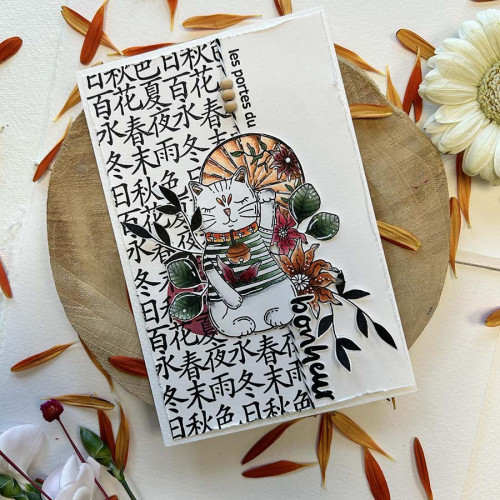 les portes du
bonheur
日秋色日秋
百花夏百花
永春夜永春
冬末雨冬末
日秋色日
百花夏
永春
冬末
日秋
百花夏
永春夜永春夜
冬末雨冬末雨
日秋色日秋色